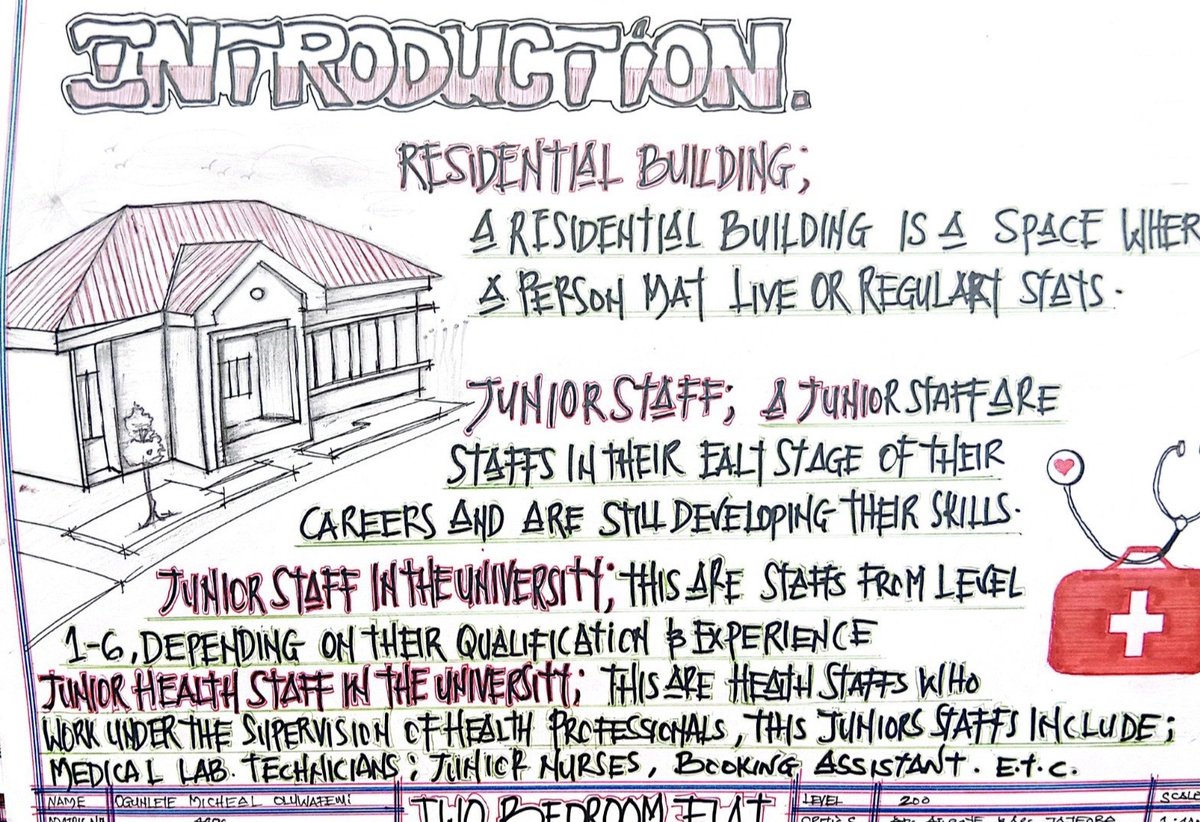 INTRODUCTION.
RESIDENTIAL BUILDING;
A RESIDENTIAL BUILDING IS A SPACE WHER
A PERSON MAT LIVE OR REGULART STATS.
JUNIOR STAFF; A JUNIOR STAFF ARE
STAFFS IN THEIR EALT STAGE OF THEIR
CAREERS AND ARE STILL DEVELOPING THEIR SKILLS.
JUNIOR STAFF IN THE UNIVERSITY; THIS ARE STAFFS FROM LEVEL
1-6, DEPENDING ON THEIR QUALIFICATION & EXPERIENCE
JUNIOR HEALTH STAFF IN THE UNIVERSITY; THIS ARE HEATH STAFFS WHO
WORK UNDER THE SUPERVISION OF HEALTH PROFESSIONALS, THIS JUNIORS STAFFS INCLUDE;
MEDICAL LAB. TECHNICIANS; JUNIOR NURSES, BOOKING ASSISTANT. E.T.C.
NAME OGUNLETE MICHEAL OLUWAFEMI TWO BEDROOM FLAT LEVEL 200 SCALE